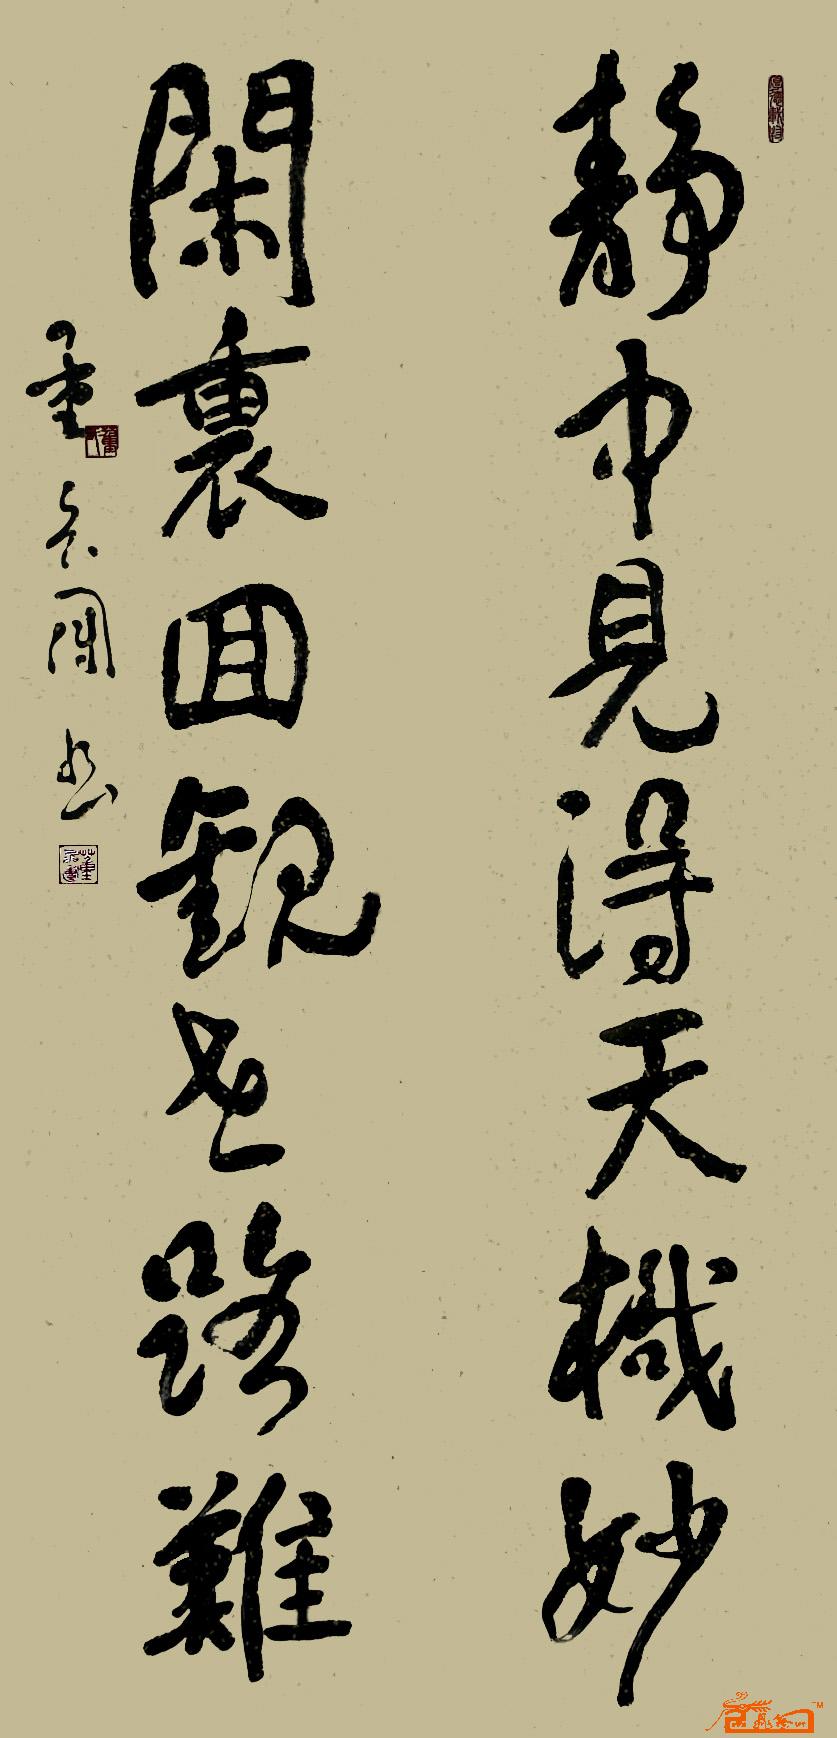 靜中見得天機妙
閑裏回觀世路難